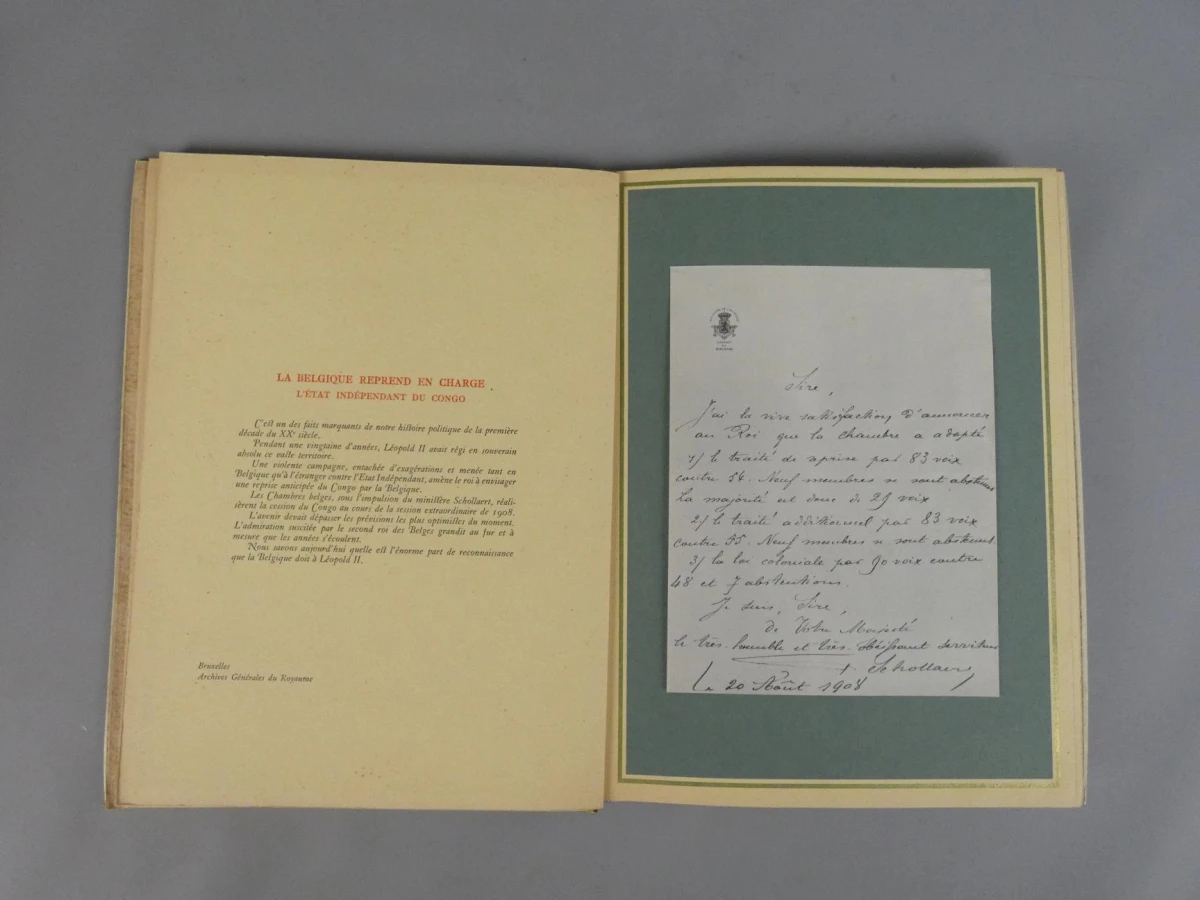 LA BELGIQUE REPREND EN CHARGE
L'ÉTAT INDÉPENDANT DU CONGO
C'est un des faits marquants de notre histoire politique de la première
décade du XXe siècle.
Pendant une vingtaine d'années, Léopold II avait régi en souverain
absolu ce vaste territoire.
Une violente campagne, entachée d'exagérations et menée tant en
Belgique qu'à l'étranger contre l'Etat Indépendant, amène le roi à envisager
une reprise anticipée du Congo par la Belgique.
Les Chambres belges, sous l'impulsion du ministère Schollaert, réali-
sèrent la cession du Congo au cours de la session extraordinaire de 1908.
L'avenir devait dépasser les prévisions les plus optimistes du moment.
L'admiration suscitée par le second roi des Belges grandit au fur et à
mesure que les années s'écoulent.
Nous savons aujourd'hui quelle est l'énorme part de reconnaissance
que la Belgique doit à Léopold II.
Bruxelles
Archives Générales du Royaume
Sire,
J'ai la vive satisfaction d'annoncer
au Roi que la chambre a adopté
1) le traité de reprise par 83 voix
contre 54. Neuf membres se sont abstenus
La majorité est donc de 29 voix
2) le traité additionnel par 83 voix
contre 55. Neuf membres se sont abstenus
3) la loi coloniale par 90 voix contre
48 et 7 abstentions.
Je suis, Sire,
de Votre Majesté
le très humble et très obéissant serviteur
Schollaert
20 Août 1908